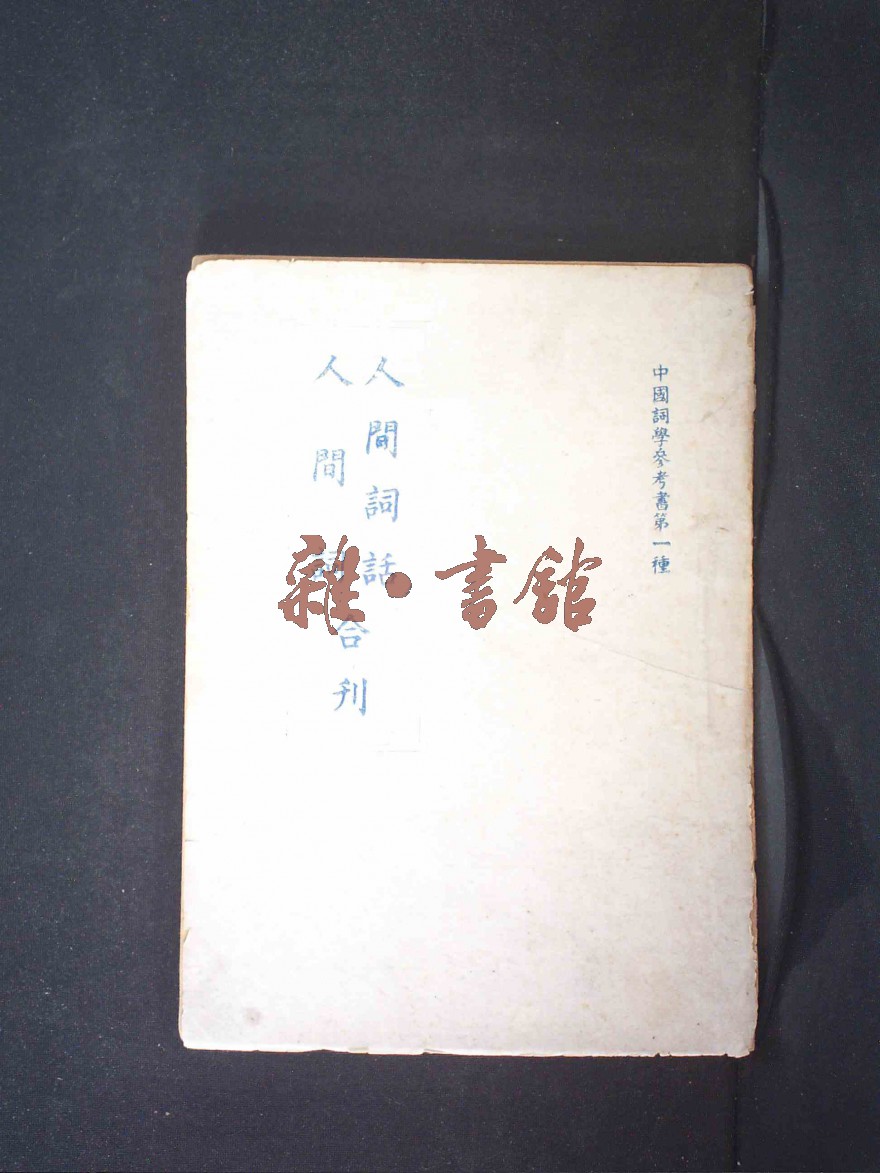 中國詞學參考書第一種
人間詞話
人間詞
合刊
雜•書館